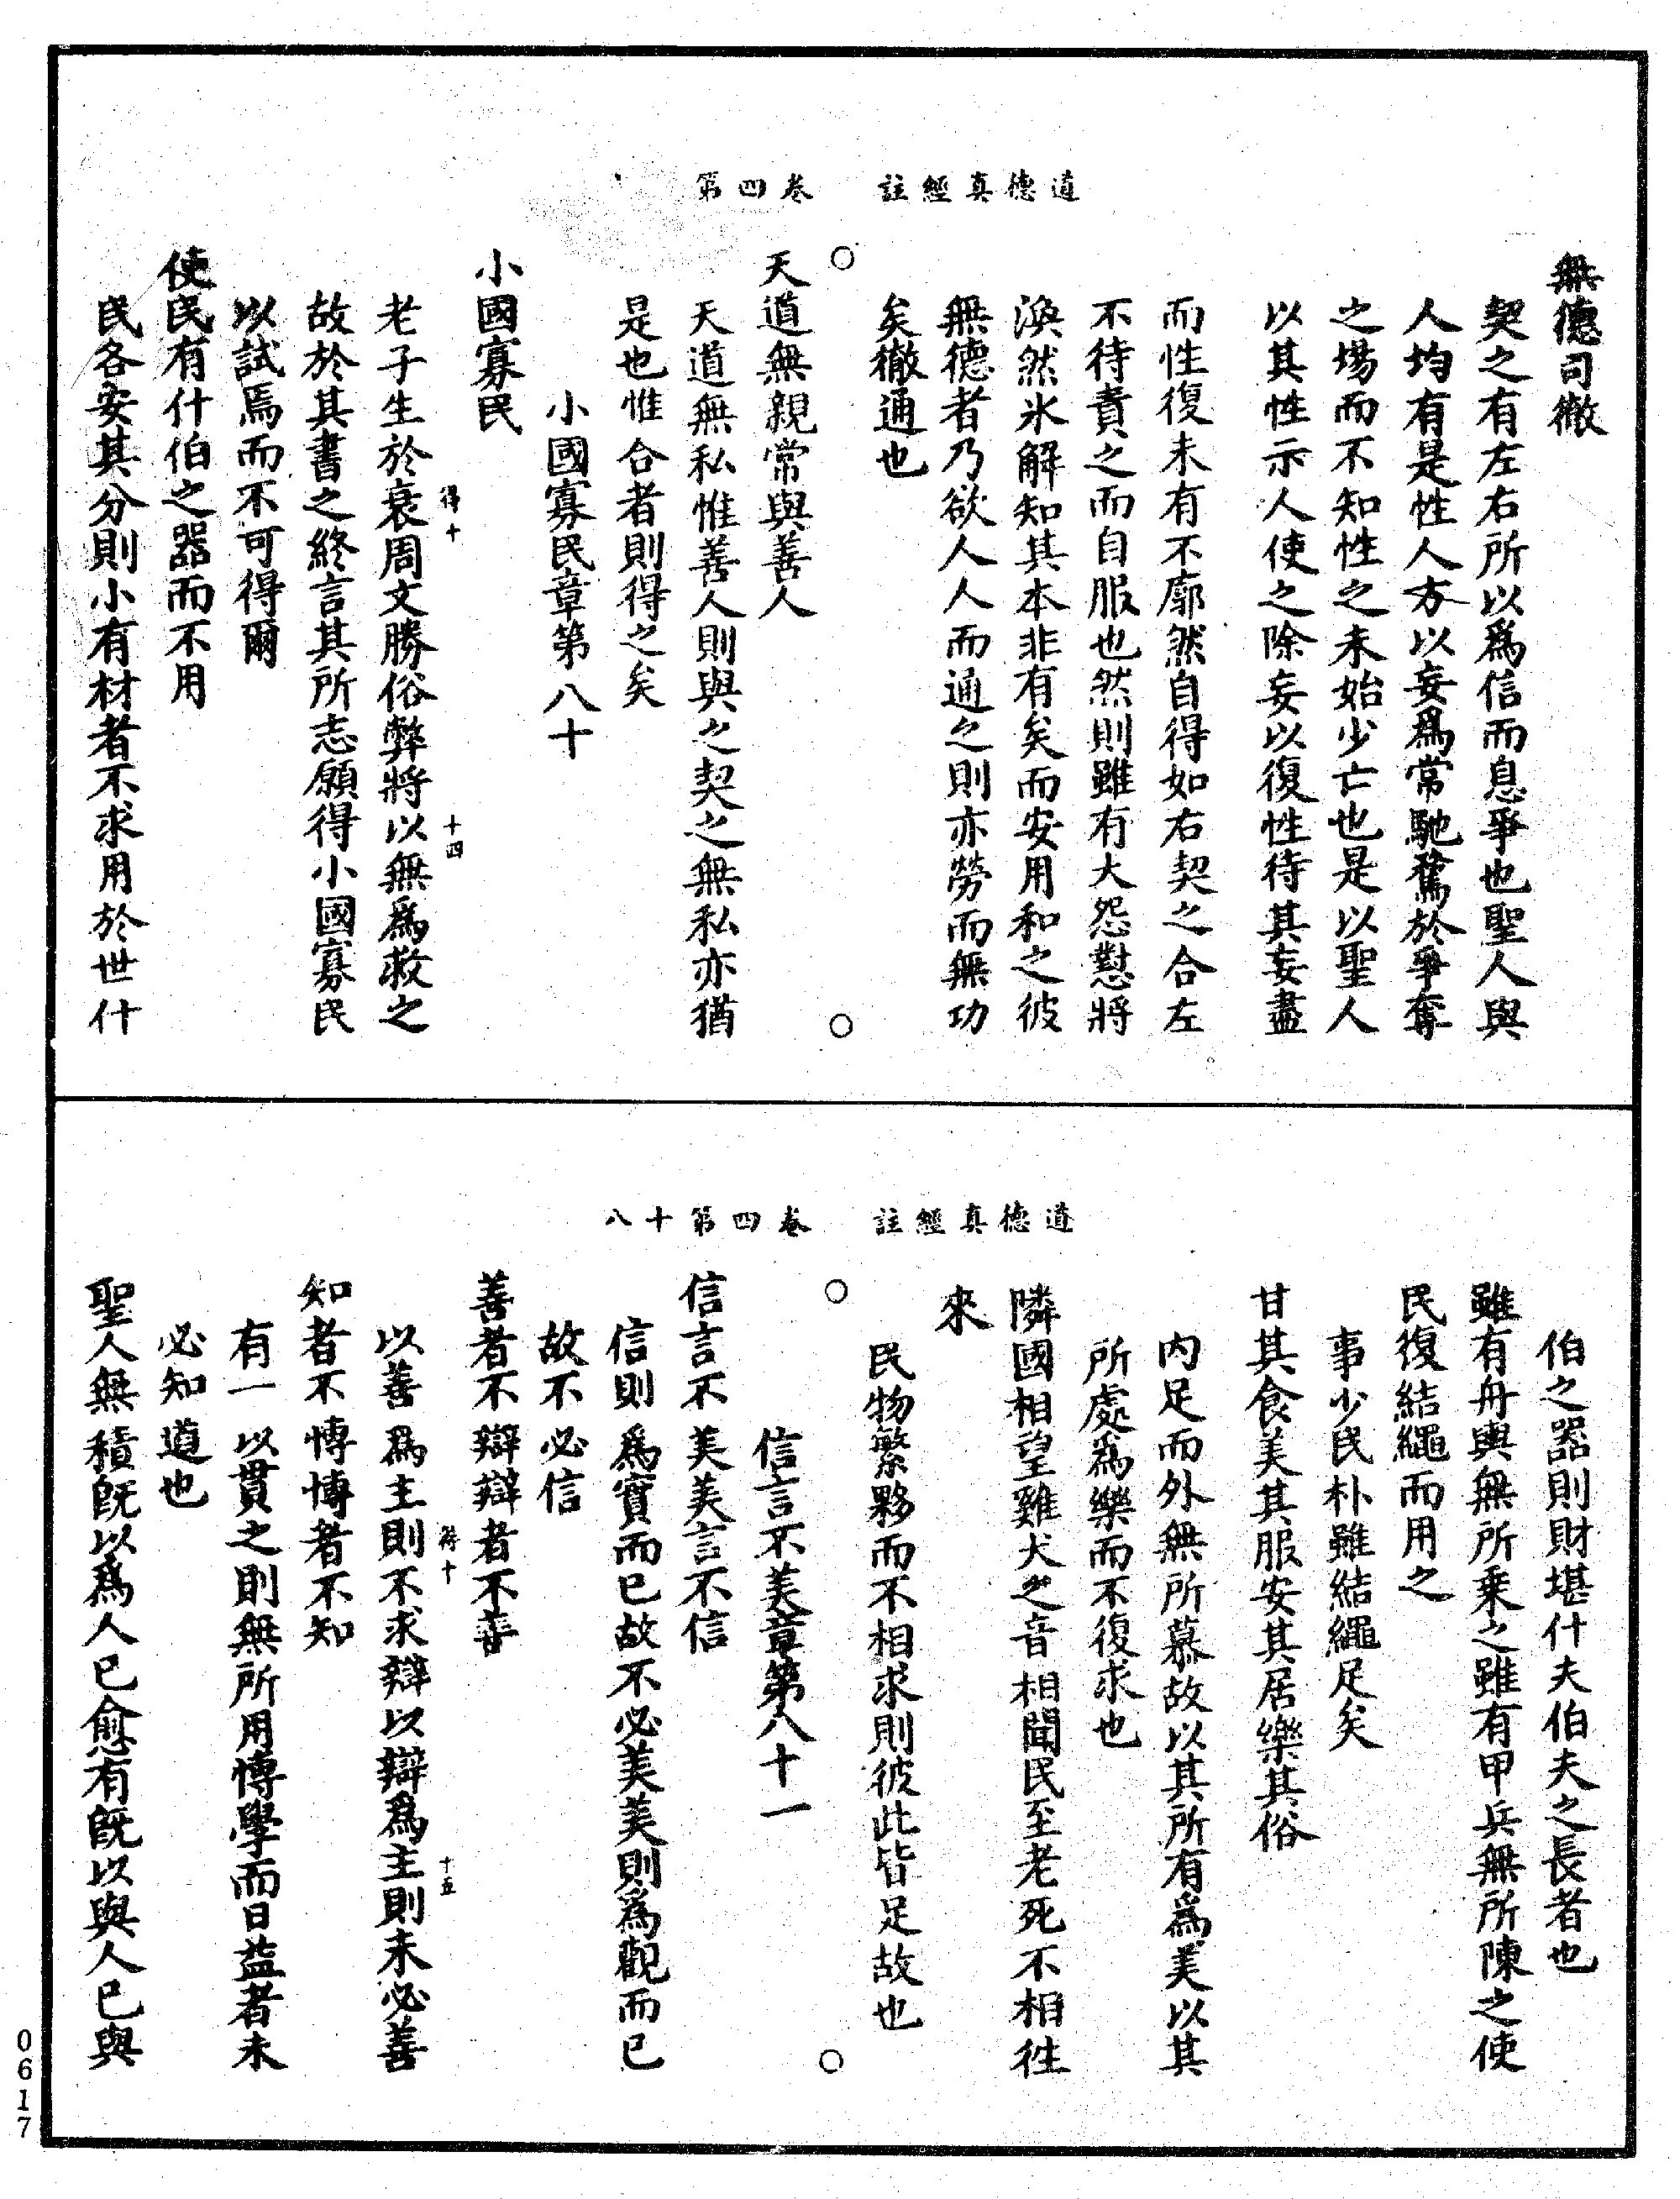 道德真經註　卷四第
無德司徹
契之有左右所以爲信而息爭也聖人與
人均有是性人方以妄爲常馳騖於爭奪
之場而不知性之未始少亡也是以聖人
以其性示人使之除妄以復性待其妄盡
而性復未有不廓然自得如右契之合左
不待責之而自服也然則雖有大怨懟將
渙然氷解知其本非有矣而安用和之彼
無德者乃欲人人而通之則亦勞而無功
矣徹通也
天道無親常與善人
天道無私惟善人則與之契之無私亦猶
是也惟合者則得之矣
小國寡民章第八十
小國寡民
得十　十四
老子生於衰周文勝俗弊將以無爲救之
故於其書之終言其所志願得小國寡民
以試焉而不可得爾
使民有什伯之器而不用
民各安其分則小有材者不求用於世什
道德真經註　卷四第十八
伯之器則財堪什夫伯夫之長者也
雖有舟輿無所乗之雖有甲兵無所陳之使
民復結繩而用之
事少民朴雖結繩足矣
甘其食美其服安其居樂其俗
内足而外無所慕故以其所有爲美以其
所處爲樂而不復求也
隣國相望雞犬之音相聞民至老死不相徃
來
民物繁夥而不相求則彼此皆足故也
信言不美章第八十一
信言不美美言不信
信則爲實而已故不必美美則爲觀而已
故不必信
善者不辯辯者不善
得十　十五
以善爲主則不求辯以辯爲主則未必善
知者不博博者不知
有一以貫之則無所用博學而日益者未
必知道也
聖人無積旣以爲人已愈有旣以與人已與
0617